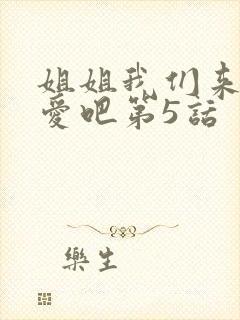 姐姐我们来
爱吧第5話
樂生